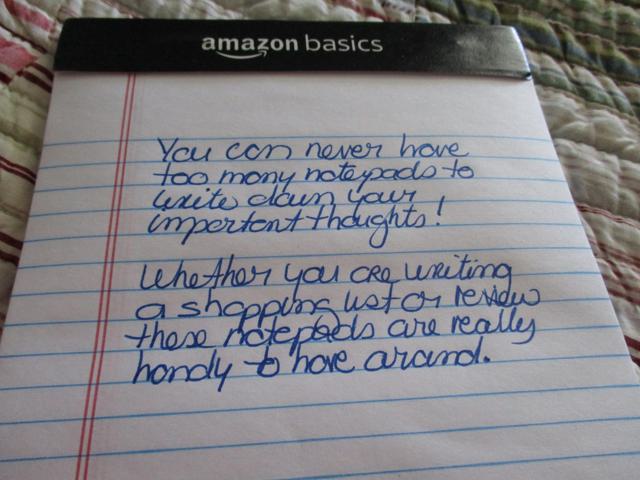 amazon basics
You can never have
too many notepads to
write down your
important thoughts!
Whether you are writing
a shopping list or review
these notepads are really
handy to have around.